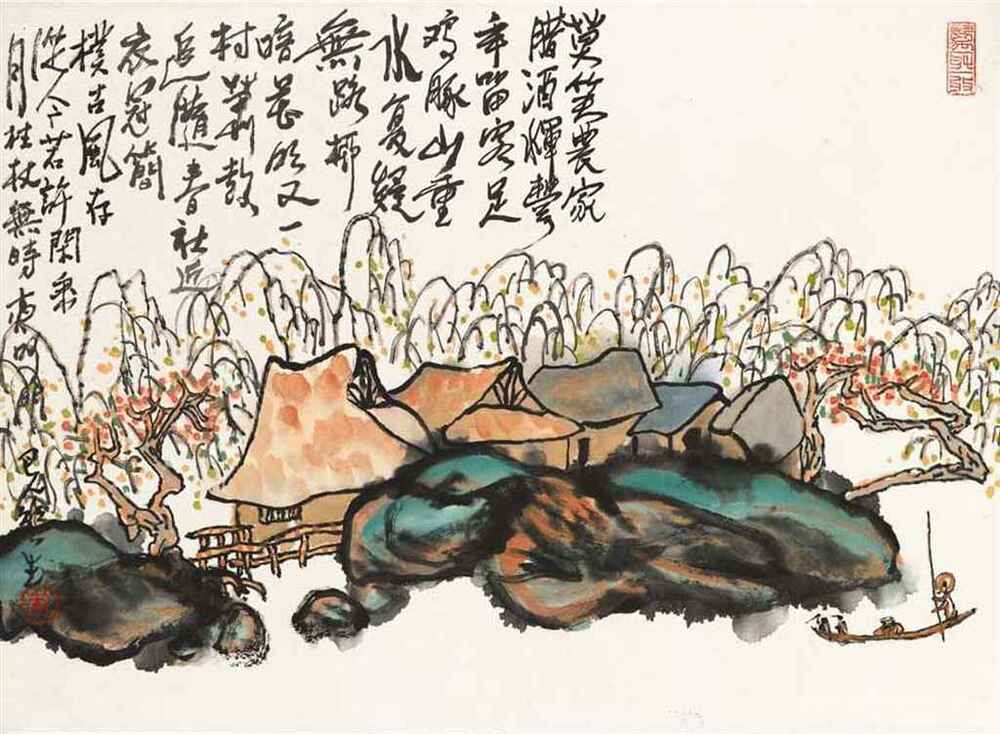 莫笑農家
腊酒渾豐
年留客足
鸡豚山重
水复疑
無路柳
暗花明又一
村簫鼓
追隨春社近
衣冠簡
樸古風存
從今若許閑乘
月柱杖無時夜叩門